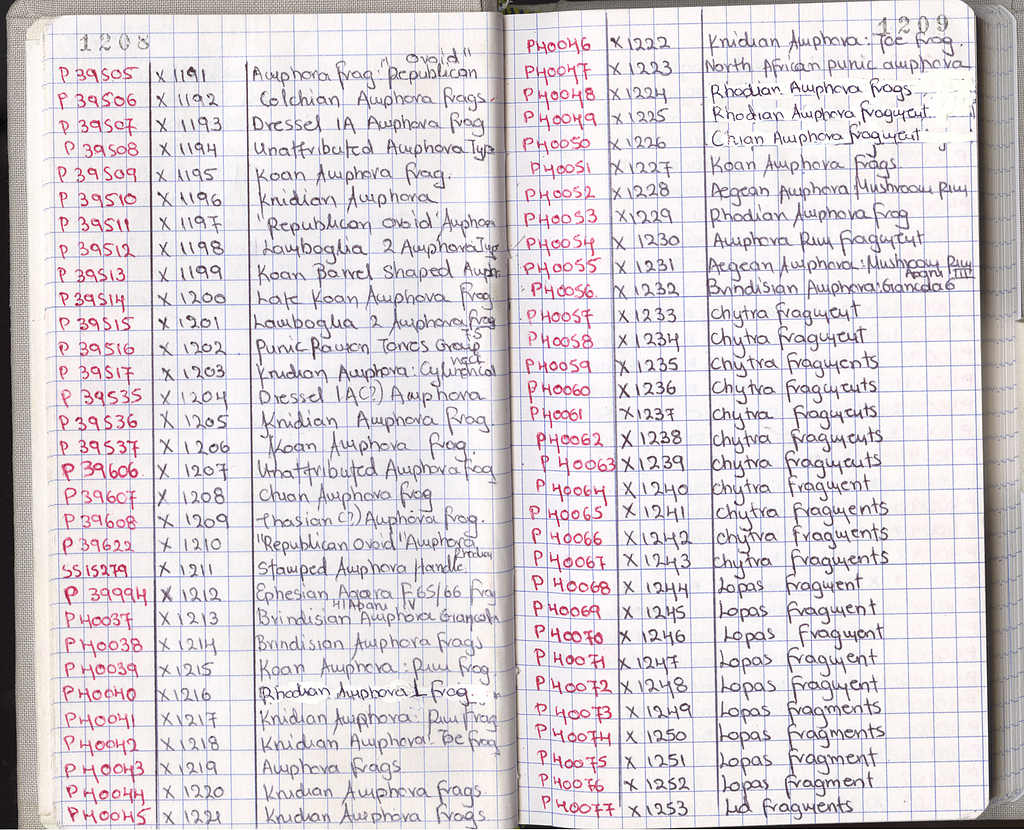 1208
P 39505 X 1191 Amphora frag: "Republican Ovoid"
P 39506 X 1192 Colchian Amphora frags.
P 39507 X 1193 Dressel 1A Amphora frag
P 39508 X 1194 Unattributed Amphora Type
P 39509 X 1195 Koan Amphora frag.
P 39510 X 1196 Knidian Amphora
P 39511 X 1197 "Republican Ovoid" Amphora
P 39512 X 1198 Lamboglia 2 Amphora Type
P 39513 X 1199 Koan Barrel Shaped Amph.
P 39514 X 1200 Late Koan Amphora frag
P 39515 X 1201 Lamboglia 2 Amphora frag
P 39516 X 1202 Punic Ramon Torres Group
P 39517 X 1203 Knidian Amphora: Cylindrical neck
P 39535 X 1204 Dressel 1A(?) Amphora
P 39536 X 1205 Knidian Amphora frag.
P 39537 X 1206 Koan Amphora frag.
P 39606 X 1207 Unattributed Amphora frag
P 39607 X 1208 Chian Amphora frag
P 39608 X 1209 Thasian (?) Amphora frag.
P 39622 X 1210 "Republican Ovoid" Amphora
SS 15279 X 1211 Stamped Amphora Handle: Rhodian
P 39994 X 1212 Ephesian Agora F 65/66 frag
P 40037 X 1213 Brindisian Amphora Giancola
P 40038 X 1214 Brindisian Amphora frags
P 40039 X 1215 Koan Amphora: Rim frag
P 40040 X 1216 Rhodian Amphora frag.
P 40041 X 1217 Knidian Amphora: Rim frag
P 40042 X 1218 Knidian Amphora: Toe frag
P 40043 X 1219 Amphora frags
P 40044 X 1220 Knidian Amphora frags.
P 40045 X 1221 Knidian Amphora frags.
1209
P 40046 X 1222 Knidian Amphora: Toe frag.
P 40047 X 1223 North African punic amphora
P 40048 X 1224 Rhodian Amphora frags
P 40049 X 1225 Rhodian Amphora fragment
P 40050 X 1226 Chian Amphora fragment
P 40051 X 1227 Koan Amphora frags
P 40052 X 1228 Aegean Amphora Mushroom Rim
P 40053 X 1229 Rhodian Amphora frag
P 40054 X 1230 Amphora Rim fragment
P 40055 X 1231 Aegean Amphora: Mushroom Rim
P 40056 X 1232 Brindisian Amphora: Giancola 6
P 40057 X 1233 Chytra fragment
P 40058 X 1234 Chytra fragment
P 40059 X 1235 Chytra fragments
P 40060 X 1236 Chytra fragments
P 40061 X 1237 Chytra fragments
P 40062 X 1238 Chytra fragments
P 40063 X 1239 Chytra fragments
P 40064 X 1240 Chytra fragment
P 40065 X 1241 Chytra fragments
P 40066 X 1242 Chytra fragments
P 40067 X 1243 Chytra fragments
P 40068 X 1244 Lopas fragment
P 40069 X 1245 Lopas fragment
P 40070 X 1246 Lopas fragment
P 40071 X 1247 Lopas fragment
P 40072 X 1248 Lopas fragment
P 40073 X 1249 Lopas fragments
P 40074 X 1250 Lopas fragments
P 40075 X 1251 Lopas fragment
P 40076 X 1252 Lopas fragment
P 40077 X 1253 Lid fragments